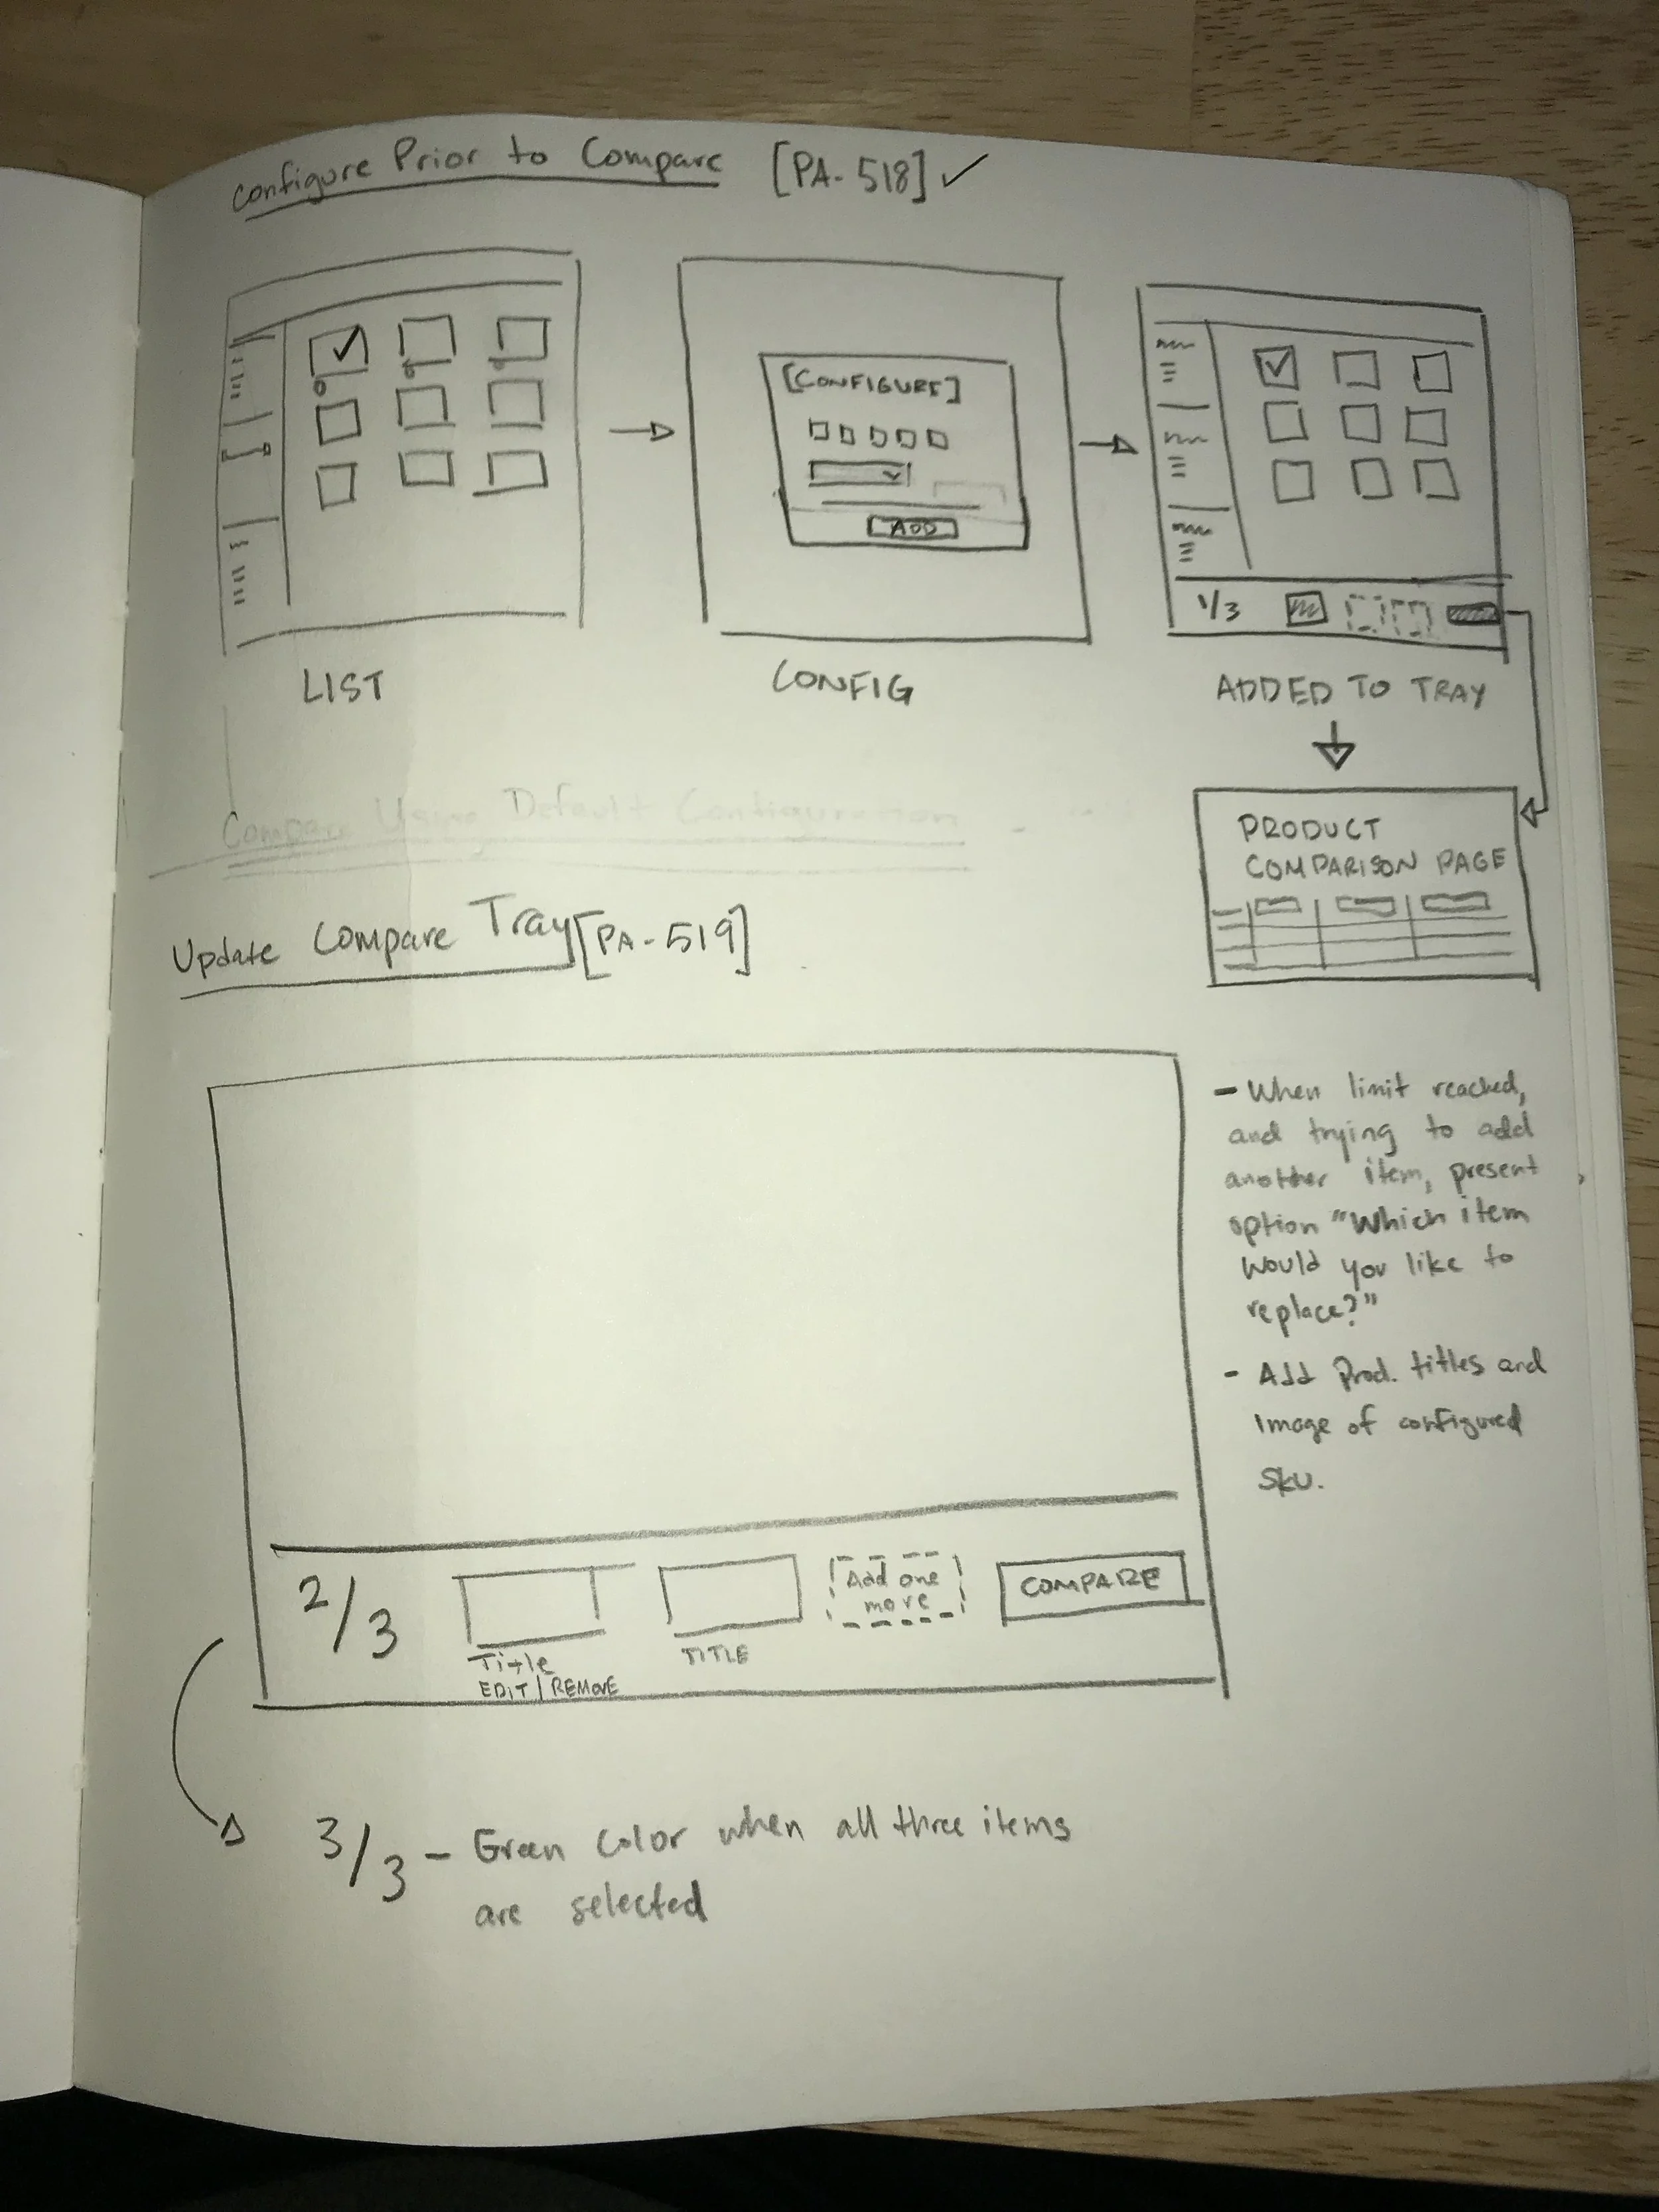 Configure Prior to Compare [PA-518] ✓
[CONFIGURE]
ADD
1/3
LIST
CONFIG
ADDED TO TRAY
PRODUCT
COMPARISON PAGE
Compare Using Default Configuration -
Update Compare Tray [PA-519]
- When limit reached,
and trying to add
another item, present
option "Which item
would you like to
replace?"
- Add Prod. titles and
image of configured
SKU.
2/3
Add one
more
COMPARE
Title
TITLE
EDIT | REMOVE
3/3 - Green color when all three items
are selected